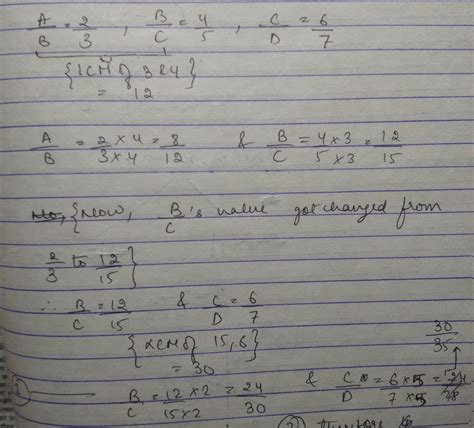 A/B = 2/3 , B/C = 4/5 , C/D = 6/7
{LCM of 3 & 4}
= 12
A/B = 2×4/3×4 = 8/12 & B/C = 4×3/5×3 = 12/15
{Now, B/C's value got changed from
2/3 to 12/15}
∴ B/C = 12/15 & C/D = 6/7
{LCM of 15,6}
= 30
30/35
① B/C = 12×2/15×2 = 24/30 & C/D = 6×5/7×5 =
② Therefore